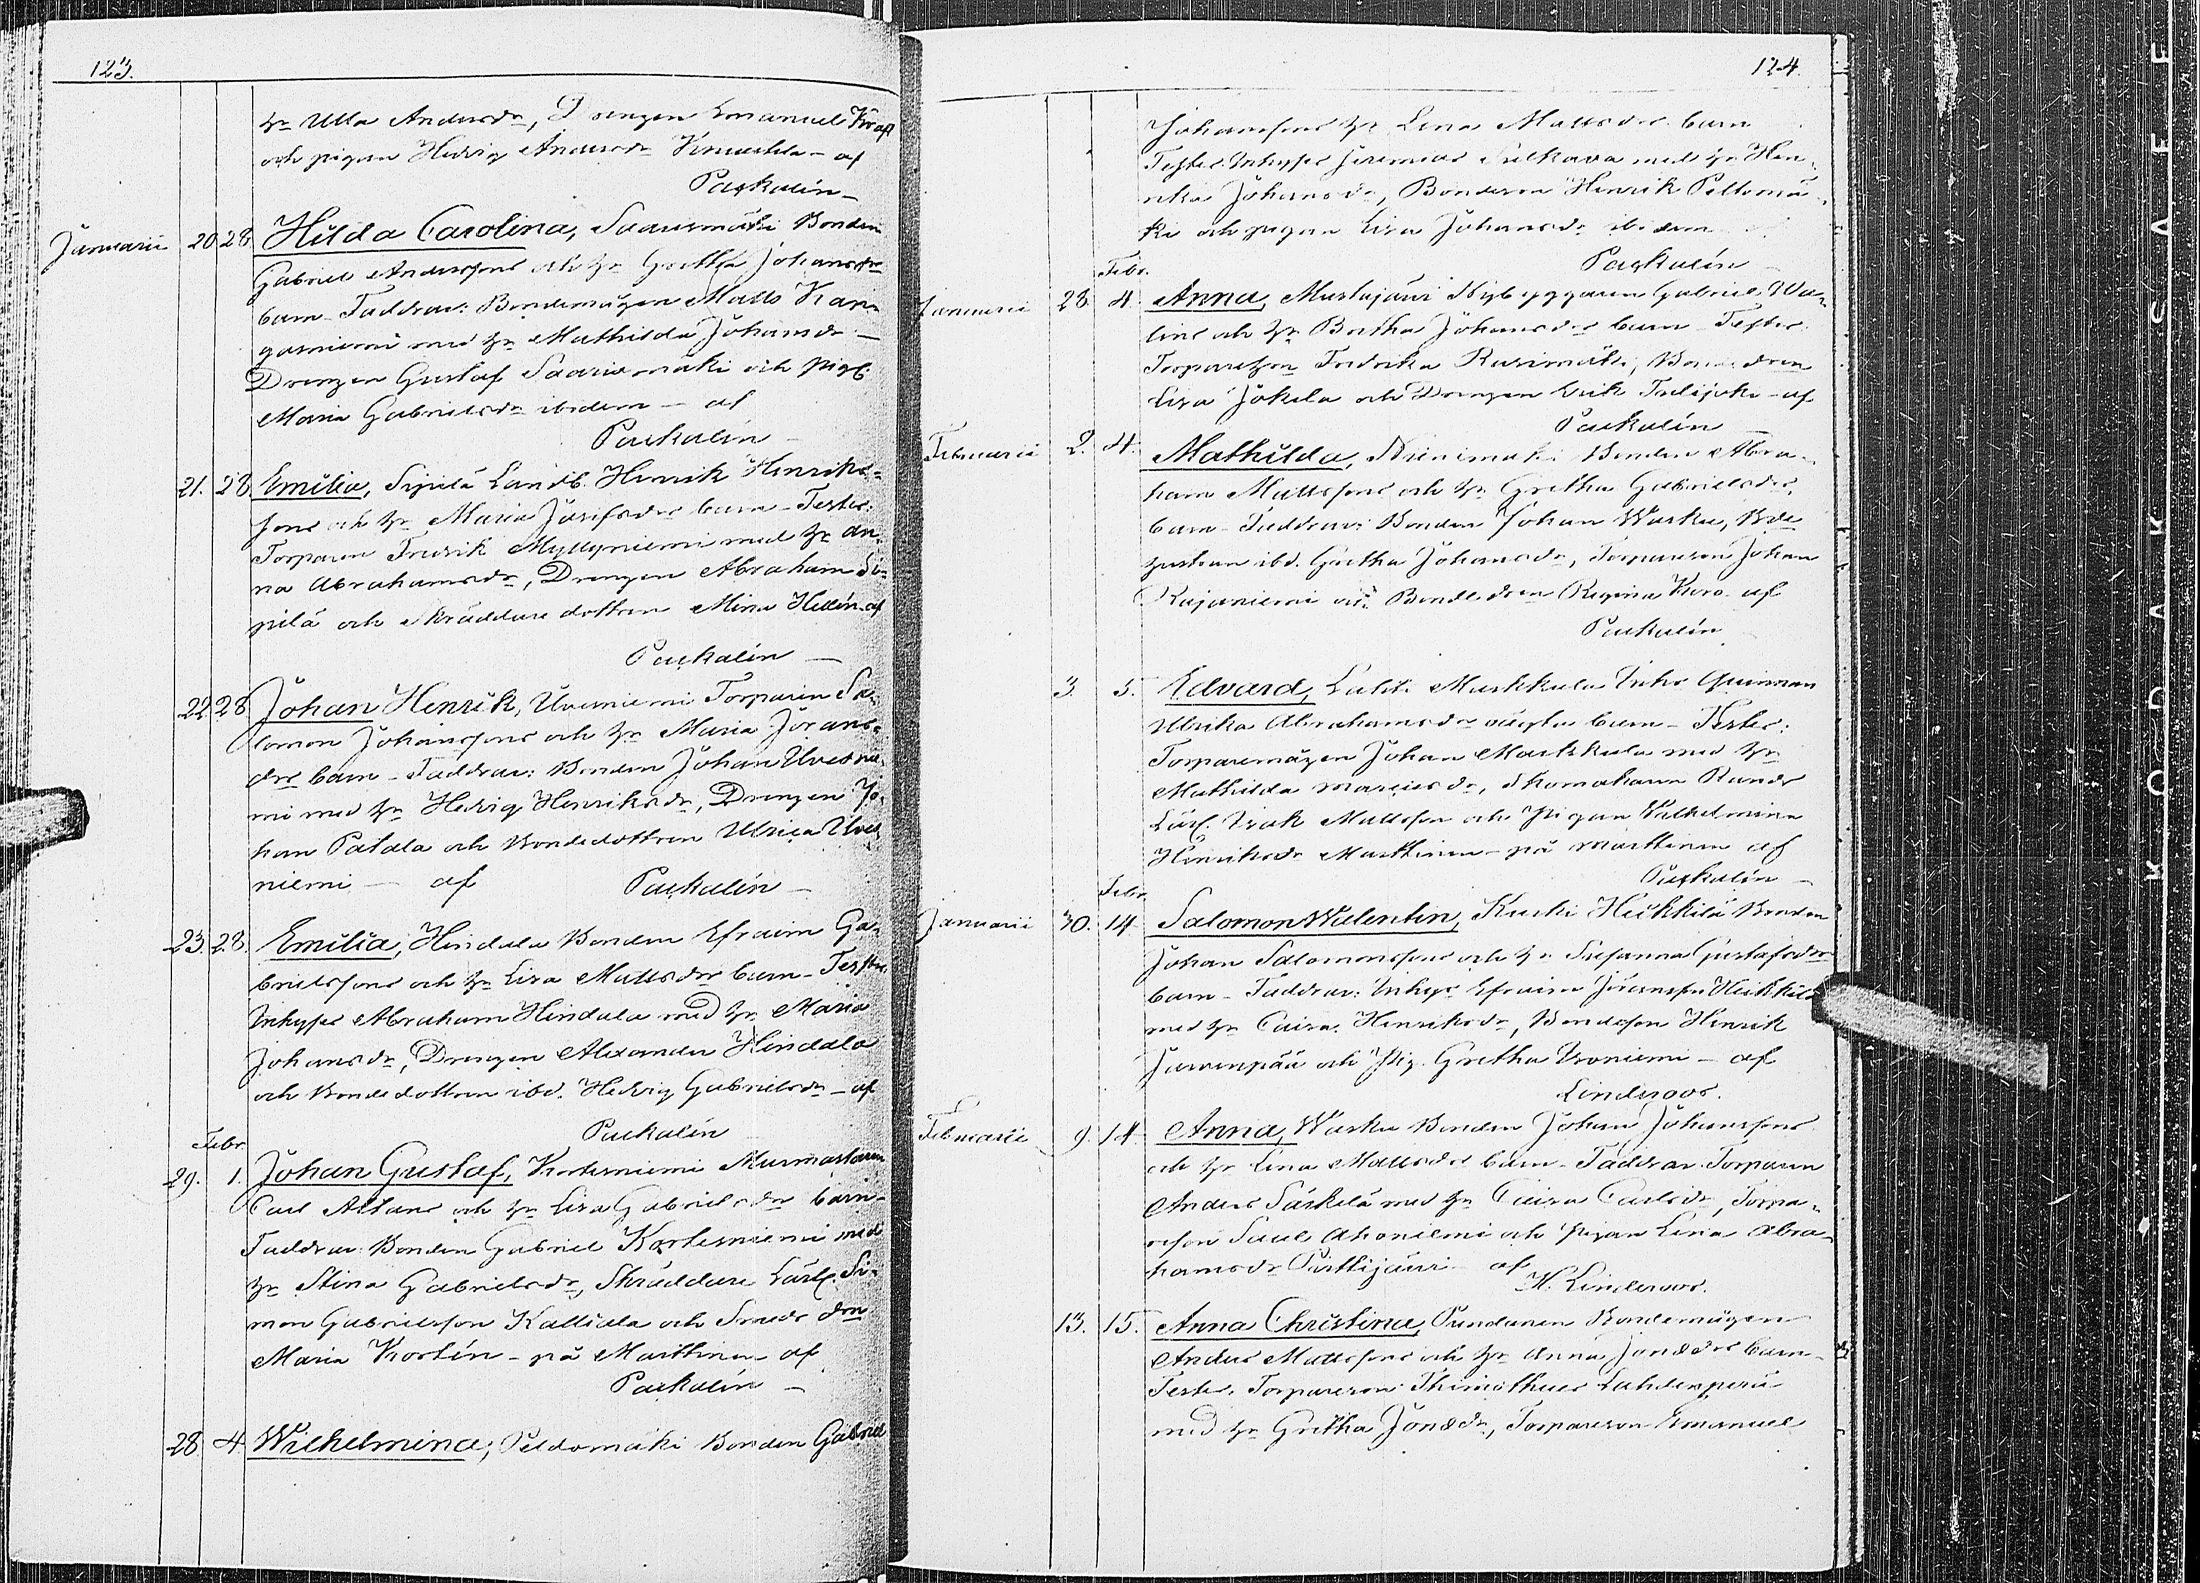 123.
hu Ulla Andersdr, Drengen Emanuel Kraft
och pigan Hedvig Andersdr af
Paskalin
Januarii 20 28 Hilda Carolina, Saarismäki Bonden
Gabriel Anderssons och hu Gretha Johansdrs
barn. Faddrar: Bondemågen Matts Kan-
gasniemi med hu Mathilda Johansdr
Drengen Gustaf Saarismäki och pig.
Maria Gabrielsdr ibidem – af
Paskalin
21. 28 Emilia, Sipilä Landb. Henrik Henriks-
sons och hu Maria Josefsdrs barn. Testes:
Torparen Fredrik Myllyniemi med hu An-
na Abrahamsdr, Drengen Abraham Si-
pilä och skräddare dottren Mina Hellén af
Paskalin
22 28 Johan Henrik, Uvesniemi Torparen Sa-
lomon Johanssons och hu Maria Jörans-
drs barn. Faddrar: Bonden Johan Uvesnie-
mi med hu Hedvig Henriksdr, Drengen Jo-
han Patala och Bondedottren Ulrica Uves
niemi – af Paskalin
23. 28. Emilia, Hindala Bonden Efraim Ga-
brielssons och hu Lisa Mattsdrs barn. Testes,
Inhyses Abraham Hindala med hu Maria
Johansdr, Drengen Alexander Hindala
och Bondedottren ibd. Hedvig Gabrielsdr – af
Paskalin
Febr.
29. 1. Johan Gustaf, Kortesniemi Murmästaren
Carl Altans och hu Lisa Gabrielsdrs barn.
Faddrar: Bonden Gabriel Kortesniemi med
hu Stina Gabrielsdr, Skräddare Lärl. Si-
mon Gabrielsson Kattiala och Smeds drn
Maria Kortén – på Marttinen – af
Paskalin
28. 4. Wilhelmina, Peldomäki Bonden Gabriel
124.
Johanssons hu Lena Mattsdrs barn
Testes. Inhyses Jeremias Sulkava med hu Hen-
rika Johansdr, Bondeson Henrik Peltomä-
ki och pigan Lisa Johansdr ibidem
Paskalin
Febr.
Januarii 28. 4. Anna, Mustajärvi Nybyggaren Gabriel Wa-
lins och hu Bertha Johansdrs barn. Testes.
Torparehn Fredrika Rasimäki, Bondedren
Lisa Jokela och Drengen Erik Talijoki – af
Paskalin
Februarii 2. 4. Mathilda, Niinimäki Bonden Abra-
ham Mattssons och hu Gretha Gabrielsdrs
barn. Faddrar: Bonden Johan Waska, Bde
hustrun ibd. Gretha Johansdr, Torpareson Johan
Rajaniemi och Bondedren Regina Koro af
Paskalin
3. 5. Edvard, Lahti Markkula Inhs Quinnan
Ulrika Abrahamsdrs oägta barn. Testes:
Torparemågen Johan Markkula med hu
Mathilda Mariasdr, Skomakaren Rands
Lärl. Isak Mattsson och Pigan Wilhelmina
Henriksdr Marttinen – på Marttinen af
Paskalin
Febr.
Januarii 30. 14 Salomon Walentin, Kurki Heikkilä Bonden
Johan Salomonssons och hu Susanna Gustafsdrs
barn. Faddrar: Inhys Efraim Jöransson Heikkilä
med hu Caisa Henriksdr, Bondeson Henrik
Järvenpää och Pig. Gretha Isoniemi – af
Linderoos.
Februarii 9. 14 Anna, Waska Bonden Johan Johanssons
och hu Lena Mattsdrs barn. Faddrar. Torparen
Anders Säskilä med hu Caisa Carlsdr, Torpa-
reson Saul Ahoniemi och pigan Lena Abra-
hamsdr Pirttijärvi af
H. Linderoos.
13. 15. Anna Christina, Pundanen Bondemågen
Anders Mattssons och hu Anna Jonædrs barn.
Testes. Torpareson Thimotheus Lahdenperä
med hu Gretha Jonædr, Torpareson Emanuel
KODAK SAFE